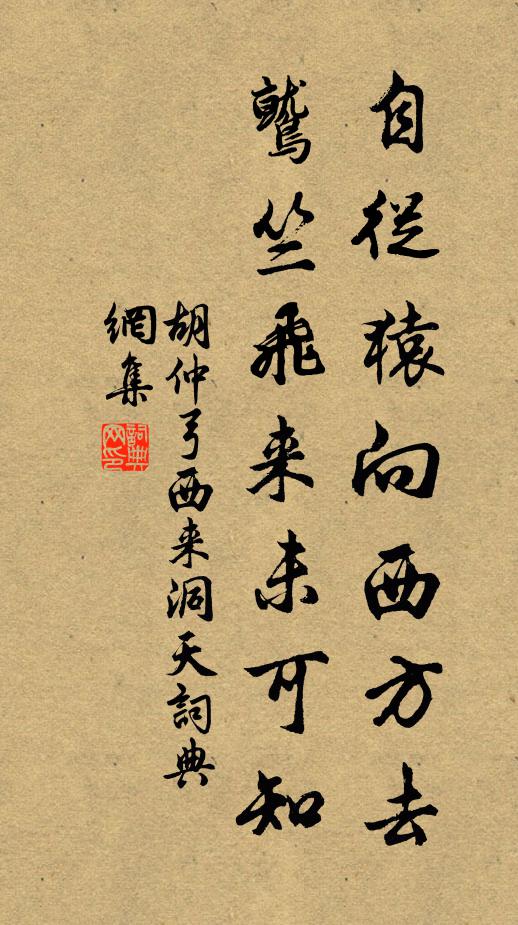 自從猿向西方去
鷲竺飛来未可知
胡仲弓西来洞天詞典
網集
詞典
网印